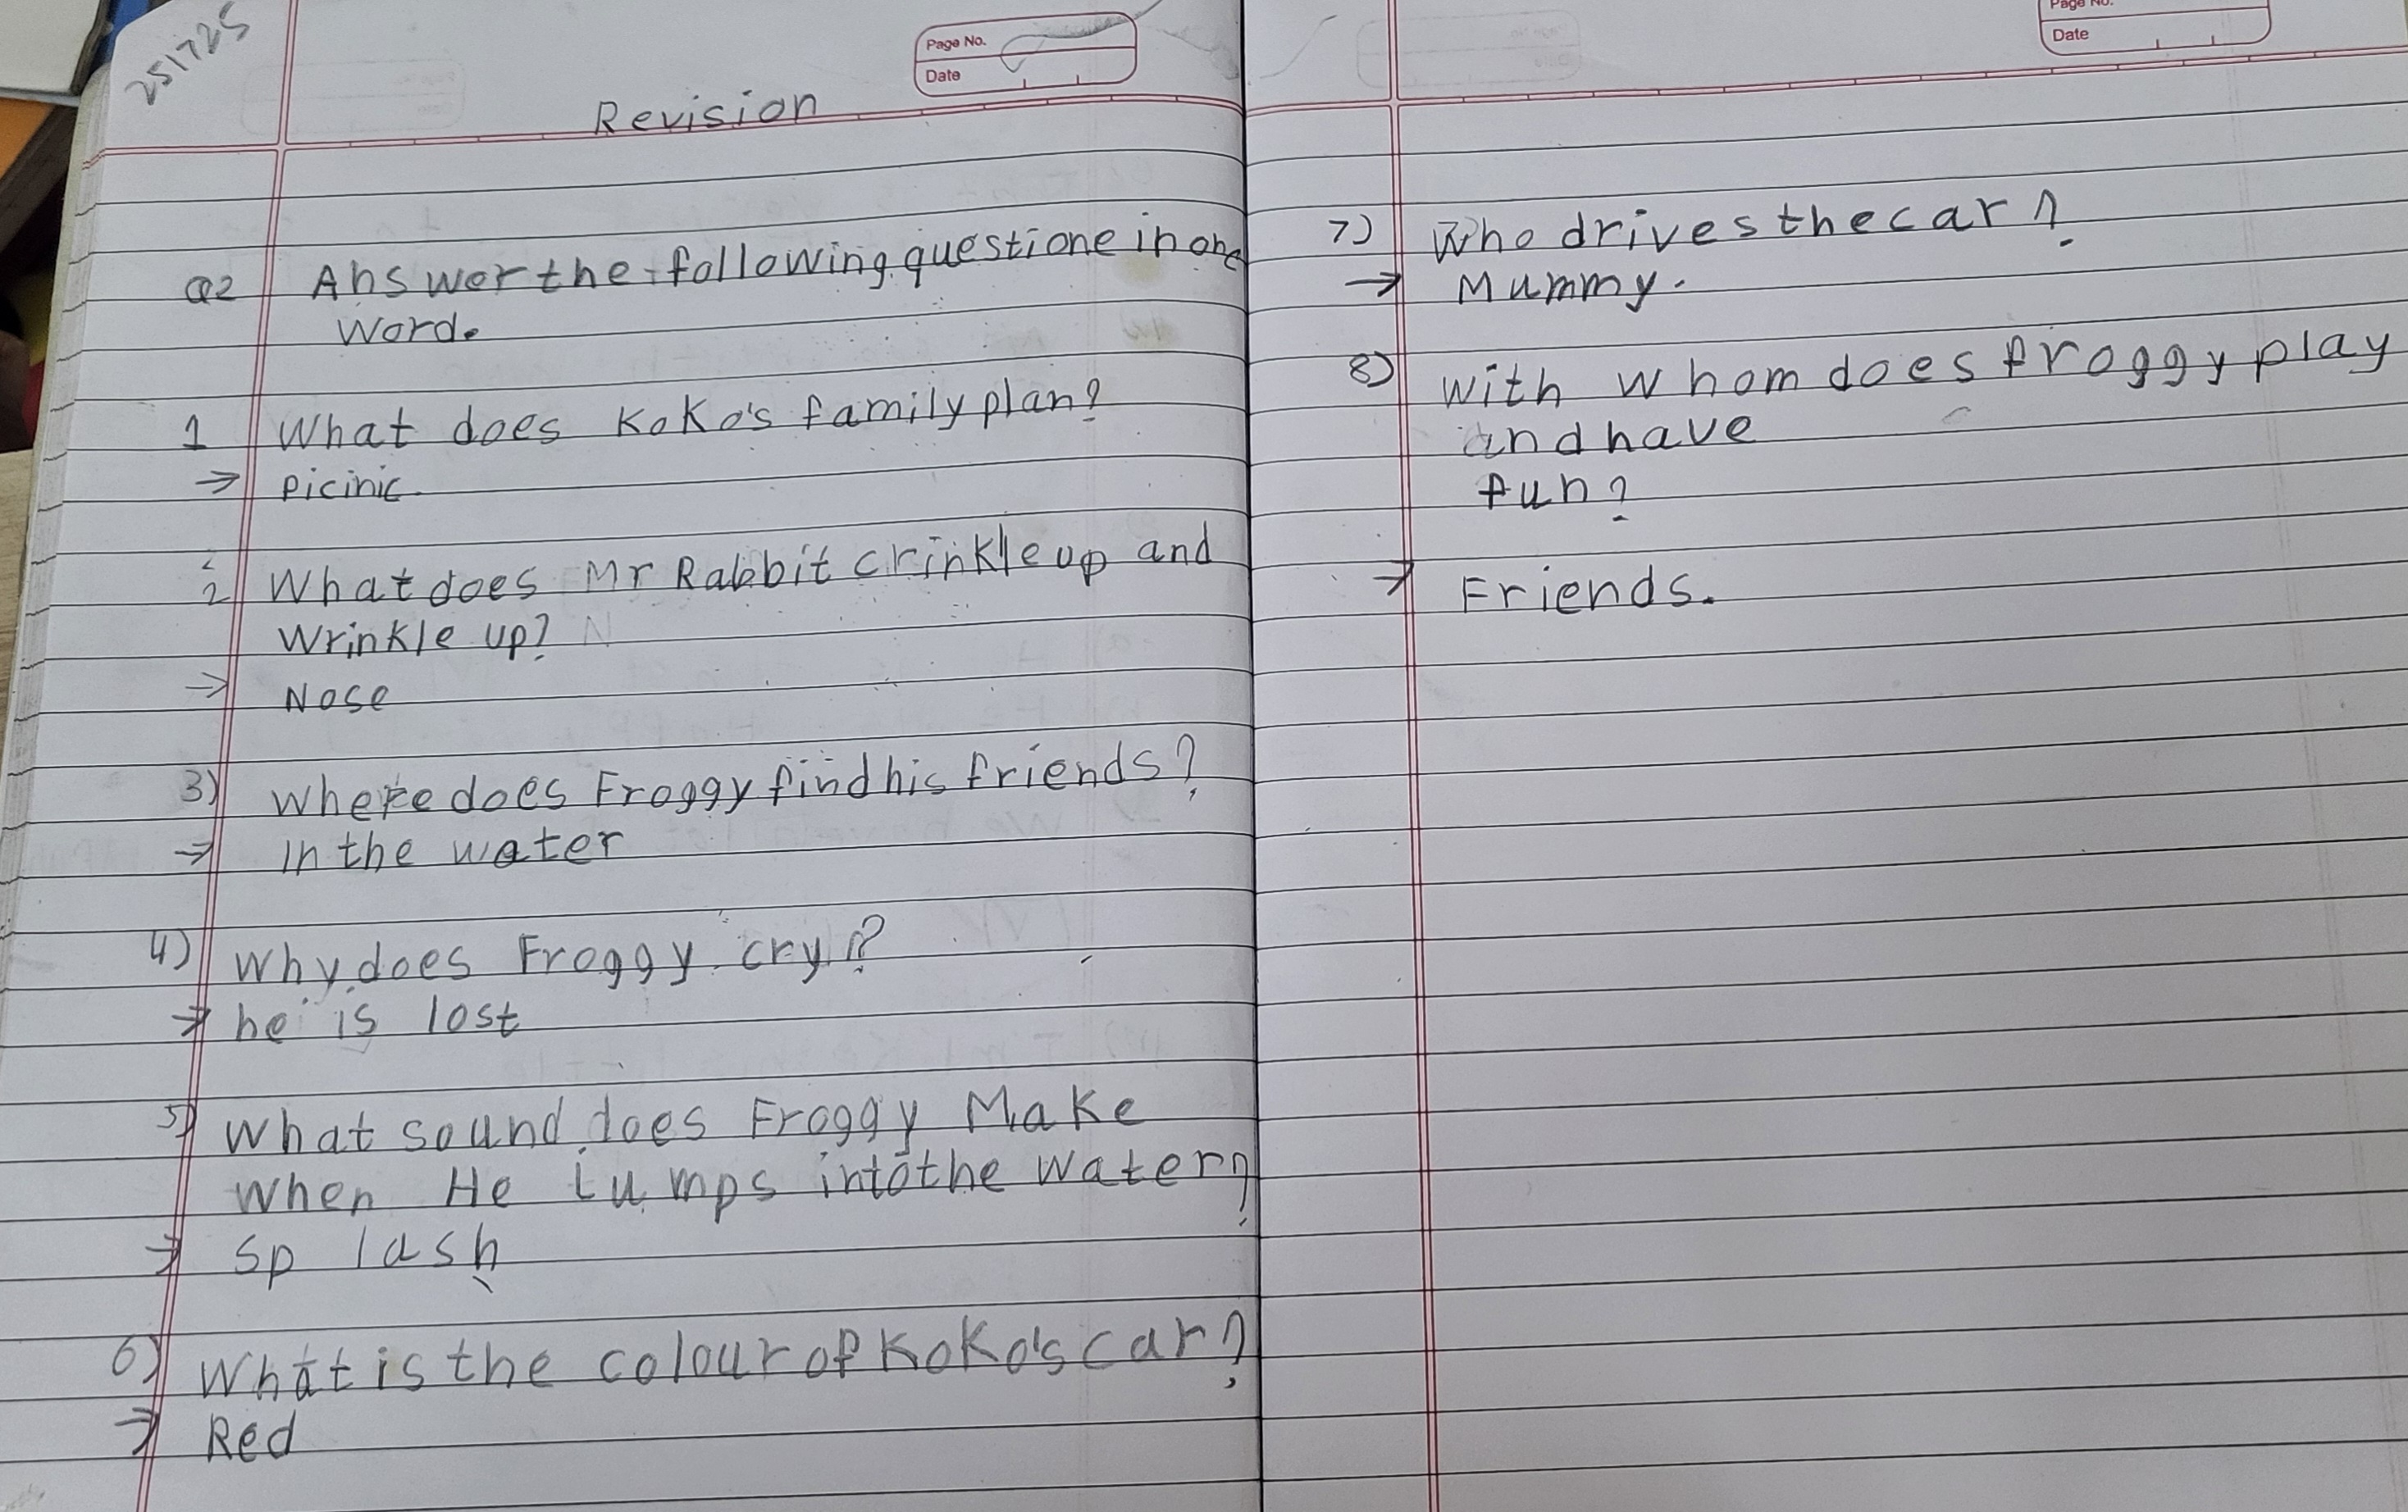 251725
Page No.
Date
Revision
Q2 Answer the following questione in one
Word.
1 What does Koko's family plan?
→ Picinic
2 What does Mr Rabbit crinkle up and
Wrinkle up?
→ Nose
3) Where does Froggy find his friends?
→ In the water
4) Why does Froggy cry?
→ he is lost
5) What sound does Froggy Make
When He Lumps into the water?
→ Sp lash
6) What is the colour of Koko's car?
→ Red
Page No.
Date
7) Who drives the car?
→ Mummy.
8) With whom does froggy play
and have
fun?
→ Friends.